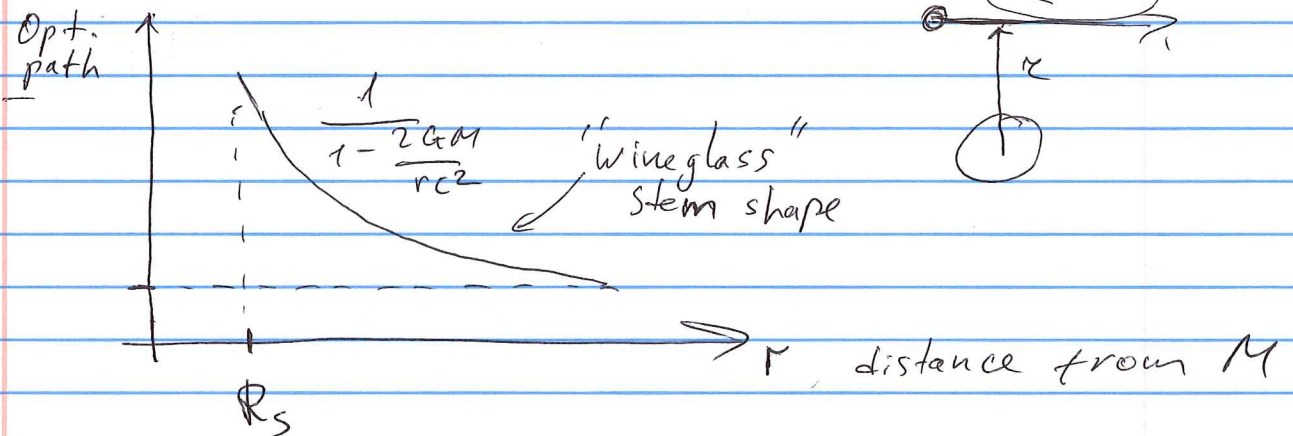 Opt.
path
1
1 - 2GM
rc²
"Wineglass"
stem shape
r
r distance from M
Rs